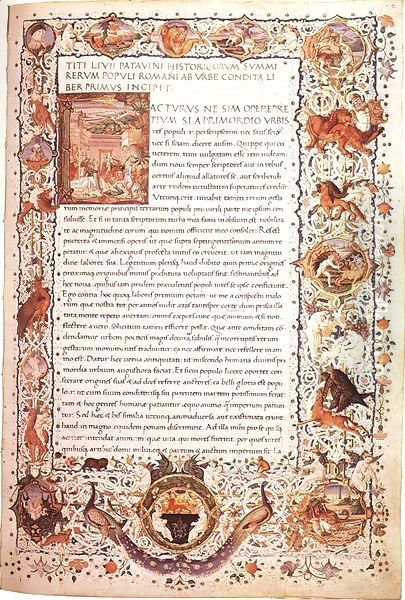 TITI LIVII PATAVINI HISTORICORVM SVMMI
RERVM POPVLI ROMANI AB VRBE CONDITA LI
BER PRIMVS INCIPIT.
ACTVRVS NE SIM OPEREPRE
TIVM SI A PRIMORDIO VRBIS
res populi .r. perscripserim nec satis scio:
nec si sciam: dicere ausim. Quippe qui cu
ueterem tum uulgatam esse rem uideam:
dum noui semper scriptores aut in rebus
certius aliquid allaturos se: aut scribendi
arte rudem uetustatem superaturos credunt.
Vtcunq erit: iuuabit tamen rerum gesta
rum memoriae principis terrarum populi pro uirili parte me ipsum con
suluisse. Et si in tanta scriptorum turba mea fama in obscuro est: nobilita
te ac magnitudine eorum: qui nomini officient meo: consoler. Res est
praeterea & immensi operis: ut quae supra septingentesimum annum re
petatur: & quae ab exiguis profecta initiis eo creuerit: ut iam magnitu
dine laboret sua. Legentium plerisq haud dubito quin primae origines
proximaq originibus minus praebitura uoluptatis sint: festinantibus ad
haec noua: quibus iam pridem praeualentis populi uires se ipsae conficiunt.
Ego contra hoc quoq laboris praemium petam: ut me a conspectu malo
rum: quae nostra tot per annos uidit aetas: tantisper certe dum prisca illa
tota mente repeto auertam: omnis expers curae: quae animum & si non
flectere a uero: sollicitum tamen efficere possit. Quae ante conditam con
dendamue urbem poeticis magis decora fabulis: quam incorruptis rerum
gestarum monumentis traduntur: ea nec affirmare nec refellere in ani
mo est. Datur haec uenia antiquitati: ut miscendo humana diuinis pri
mordia urbium augustiora faciat. Et si cui populo licere oportet con
secrare origines suas: & ad deos referre auctores: ea belli gloria est popu
lo .r. ut cum suum conditorisq sui parentem martem potissimum ferat
tam & hoc gentes humanae patiantur: equo animo q imperium patiun
tur. Sed haec & his similia utcunq animaduersa: aut existimata erunt
haud in magno equidem ponam discrimine. Ad illa mihi pro se quisq
acriter intendat animum: quae uita: qui mores fuerint: per quos uiros
quibusq artibus domi militiaeq & partum & auctum imperium sit. La